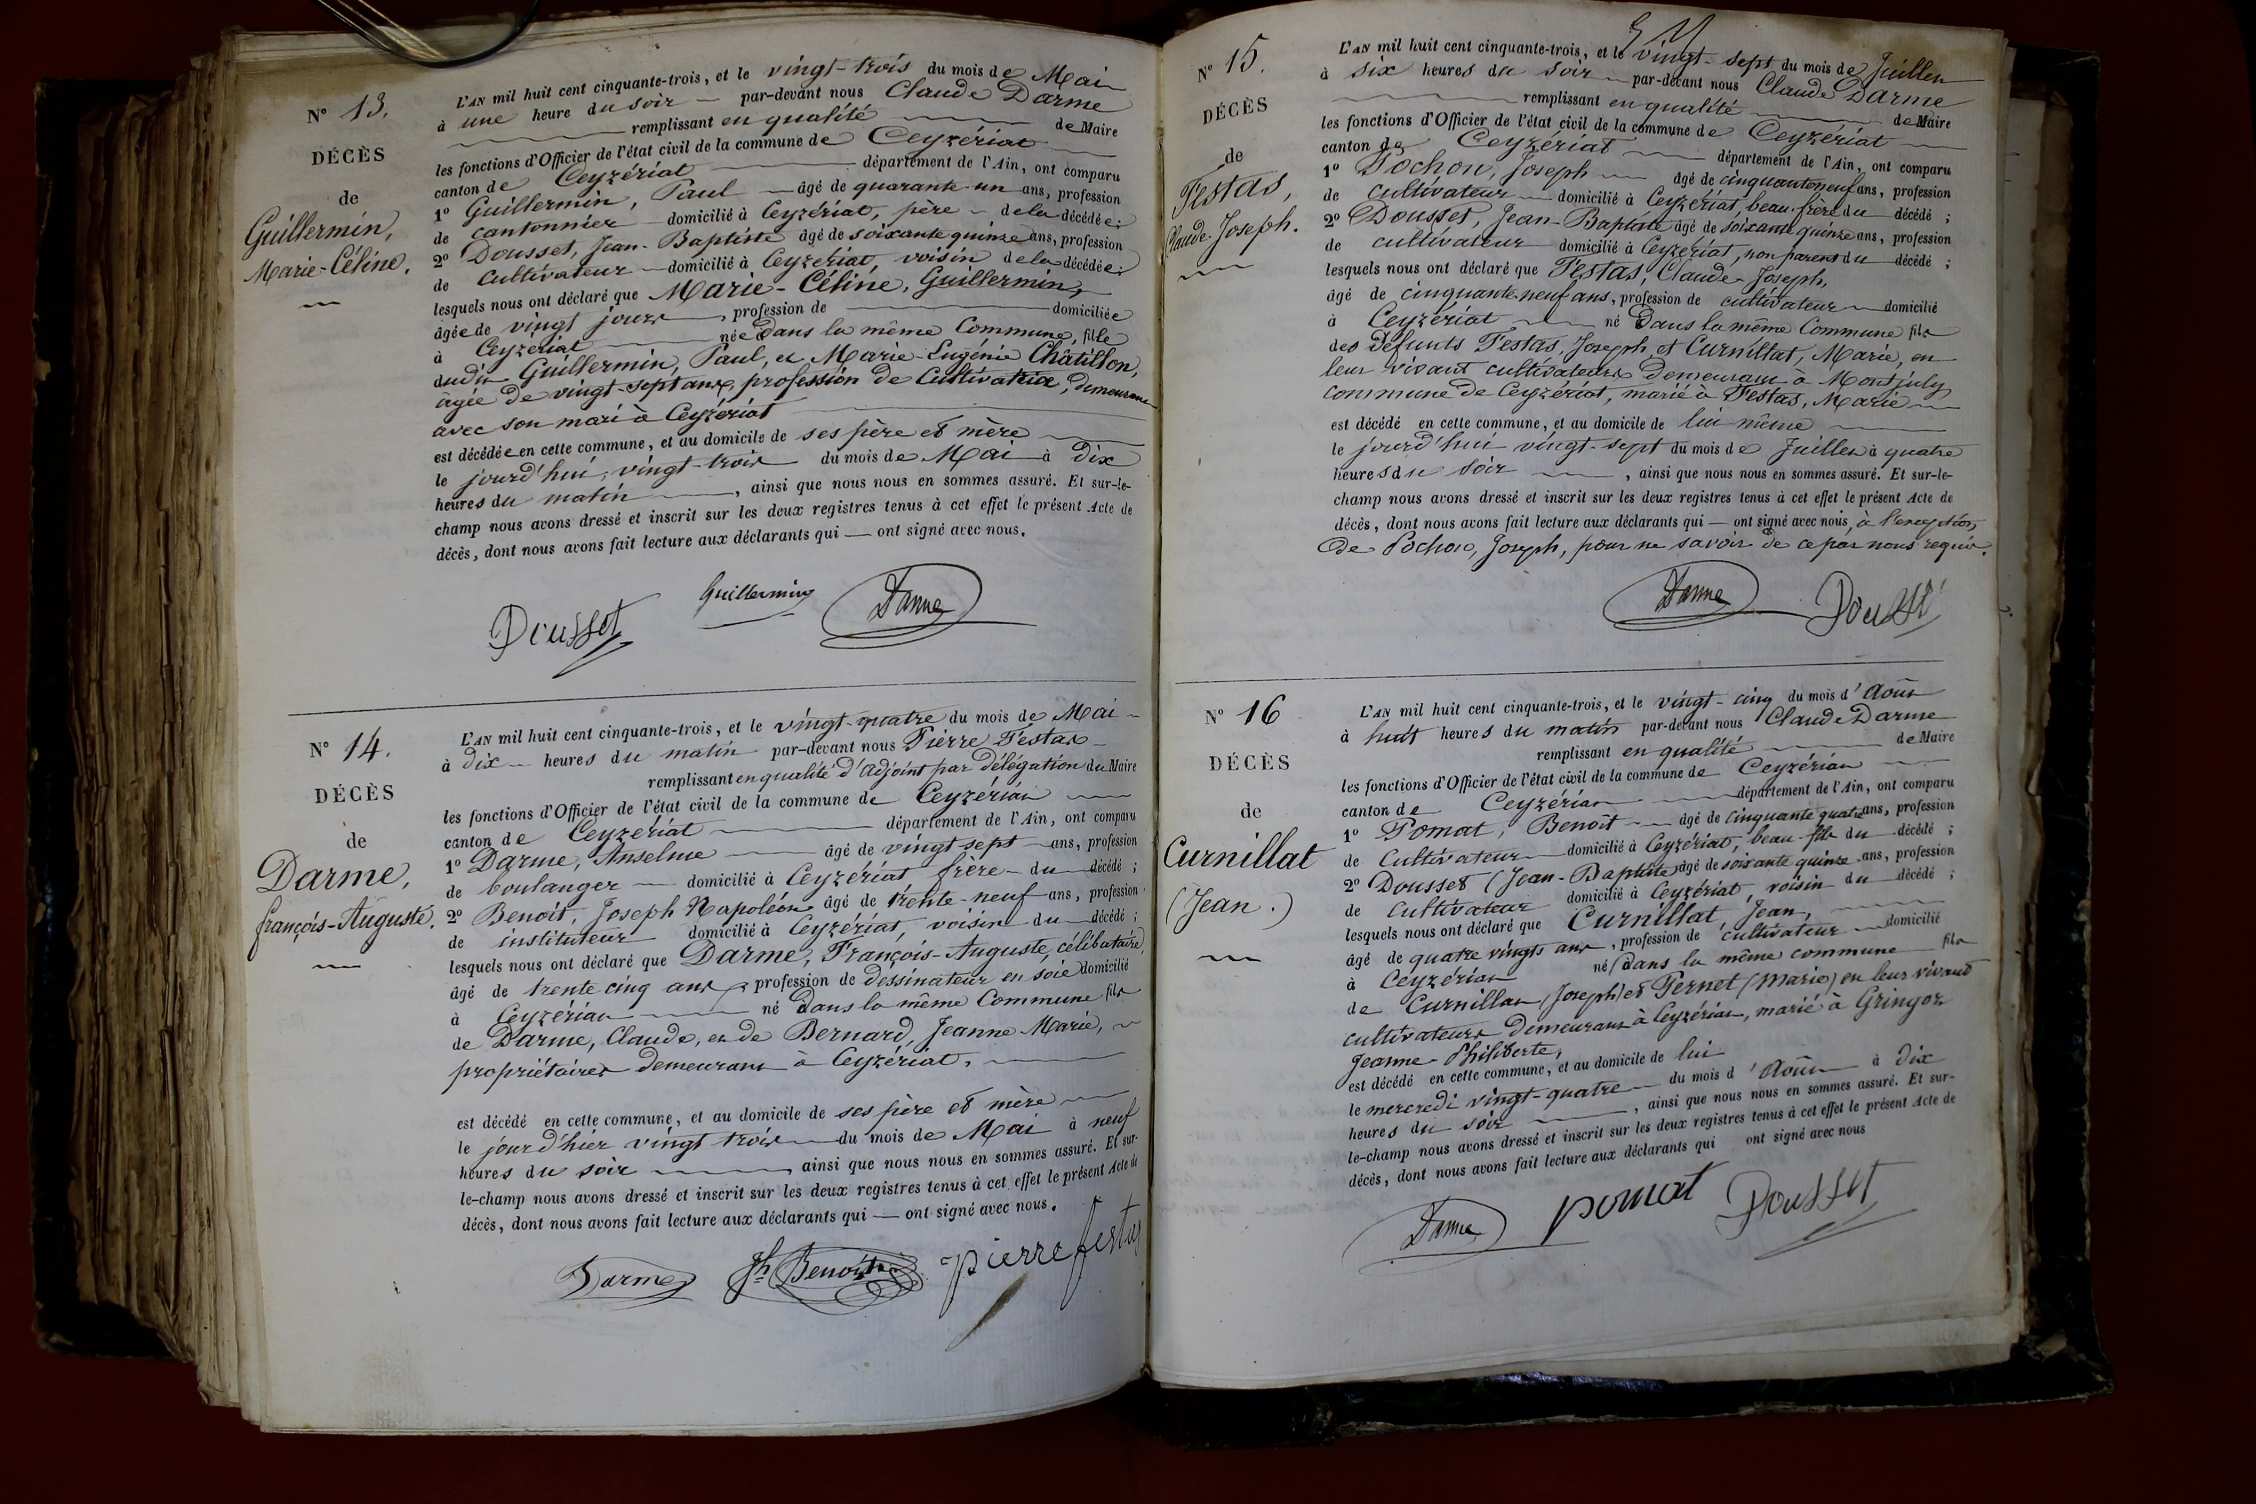 N° 13.
DÉCÈS
de
Guillermin,
Marie-Céline.
L'AN mil huit cent cinquante-trois, et le vingt-trois du mois de Mai
à une heure du soir — par-devant nous Claude Darme
remplissant en qualité de Maire
les fonctions d'Officier de l'état civil de la commune de Ceyzériat
canton de Ceyzériat département de l'Ain, ont comparu
1° Guillermin, Paul — âgé de quarante-un ans, profession
de cantonnier domicilié à Ceyzériat, père — de la décédée;
2° Dousset, Jean-Baptiste âgé de soixante quinze ans, profession
de cultivateur — domicilié à Ceyzériat, voisin de la décédée;
lesquels nous ont déclaré que Marie-Céline, Guillermin,
âgée de vingt jours, profession de domiciliée
à Ceyzériat née dans la même Commune, fille
dudit Guillermin, Paul, et Marie-Eugénie Châtillon,
âgée de vingt-sept ans, profession de Cultivatrice, demeurant
avec son mari à Ceyzériat
est décédée en cette commune, et au domicile de ses père et mère
le jourd'hui, vingt-trois du mois de Mai à dix
heures du matin, ainsi que nous nous en sommes assuré. Et sur-le-
champ nous avons dressé et inscrit sur les deux registres tenus à cet effet le présent Acte de
décès, dont nous avons fait lecture aux déclarants qui — ont signé avec nous.
Dousset Guillermin Darme
N° 14.
DÉCÈS
de
Darme,
françois-Auguste.
L'AN mil huit cent cinquante-trois, et le vingt-quatre du mois de Mai
à dix — heures du matin par-devant nous Pierre Festas
remplissant en qualité d'adjoint par délégation du Maire
les fonctions d'Officier de l'état civil de la commune de Ceyzériat
canton de Ceyzériat département de l'Ain, ont comparu
1° Darme, Anselme âgé de vingt sept ans, profession
de boulanger — domicilié à Ceyzériat frère — du décédé;
2° Benoit, Joseph Napoléon âgé de trente-neuf ans, profession
de instituteur domicilié à Ceyzériat, voisin du décédé;
lesquels nous ont déclaré que Darme, François-Auguste, célibataire,
âgé de trente cinq ans, profession de dessinateur en soie domicilié
à Ceyzériat né dans la même Commune fils
de Darme, Claude, et de Bernard, Jeanne Marie,
propriétaires demeurant à Ceyzériat.
est décédé en cette commune, et au domicile de ses père et mère
le jour d'hier vingt trois du mois de Mai à neuf
heures du soir ainsi que nous nous en sommes assuré. Et sur-
le-champ nous avons dressé et inscrit sur les deux registres tenus à cet effet le présent Acte de
décès, dont nous avons fait lecture aux déclarants qui — ont signé avec nous.
Darme Jh Benoit pierre festas
N° 15.
DÉCÈS
de
Festas,
Claude-Joseph.
L'AN mil huit cent cinquante-trois, et le vingt-sept du mois de Juillet
à six heures du soir par-devant nous Claude Darme
remplissant en qualité de Maire
les fonctions d'Officier de l'état civil de la commune de Ceyzériat
canton de Ceyzériat département de l'Ain, ont comparu
1° Pochon, Joseph âgé de cinquante neuf ans, profession
de cultivateur domicilié à Ceyzériat, beau-frère du décédé;
2° Dousset, Jean-Baptiste âgé de soixante quinze ans, profession
de cultivateur domicilié à Ceyzériat, non parent du décédé;
lesquels nous ont déclaré que Festas, Claude-Joseph,
âgé de cinquante-neuf ans, profession de cultivateur domicilié
à Ceyzériat né dans la même Commune fils
des défunts Festas, Joseph, et Curnillat, Marie, en
leur vivant cultivateurs demeurant à Montjuly,
commune de Ceyzériat, marié à Festas, Marie
est décédé en cette commune, et au domicile de lui-même
le jourd'hui vingt-sept du mois de Juillet à quatre
heures du soir, ainsi que nous nous en sommes assuré. Et sur-le-
champ nous avons dressé et inscrit sur les deux registres tenus à cet effet le présent Acte de
décès, dont nous avons fait lecture aux déclarants qui — ont signé avec nous, à l'exception
de Pochon, Joseph, pour ne savoir de ce par nous requis.
Darme Dousset
N° 16
DÉCÈS
de
Curnillat
(Jean.)
L'AN mil huit cent cinquante-trois, et le vingt-cinq du mois d'Août
à huit heures du matin par-devant nous Claude Darme
remplissant en qualité de Maire
les fonctions d'Officier de l'état civil de la commune de Ceyzériat
canton de Ceyzériat département de l'Ain, ont comparu
1° Pomat, Benoît âgé de cinquante quatre ans, profession
de cultivateur domicilié à Ceyzériat, beau-fils du décédé;
2° Dousset (Jean-Baptiste âgé de soixante quinze ans, profession
de cultivateur domicilié à Ceyzériat, voisin du décédé;
lesquels nous ont déclaré que Curnillat, Jean,
âgé de quatre vingts ans, profession de cultivateur domicilié
à Ceyzériat né dans la même commune fils
de Curnillat (Joseph) et Pernet (Marie) en leur vivant
cultivateurs demeurant à Ceyzériat, marié à Gringoz
Jeanne-Philiberte,
est décédé en cette commune, et au domicile de lui
le mercredi vingt-quatre du mois d'Août à dix
heures du soir, ainsi que nous nous en sommes assuré. Et sur-
le-champ nous avons dressé et inscrit sur les deux registres tenus à cet effet le présent Acte de
décès, dont nous avons fait lecture aux déclarants qui ont signé avec nous
Darme pomat Dousset